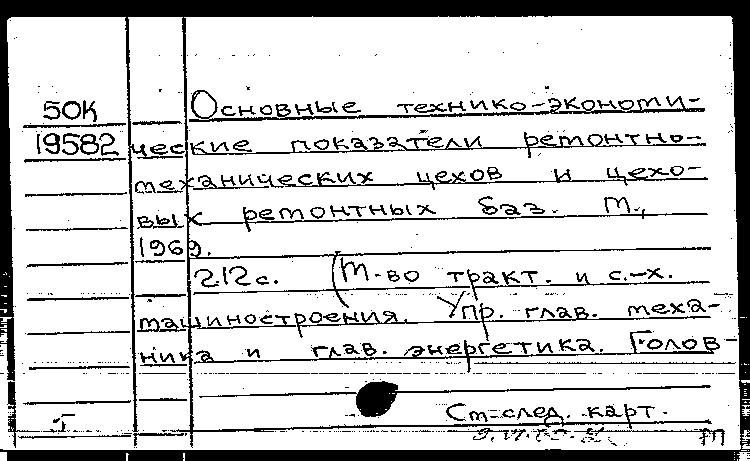 50К Основные технико-экономи-
19582 ческие показатели ремонтно-
механических цехов и цехо-
вых ремонтных баз. М.,
1969.
212 с. (М-во тракт. и с.-х.
машиностроения. Упр. глав. меха-
ника и глав. энергетика. Голов-
См-след. карт.
Т
РП